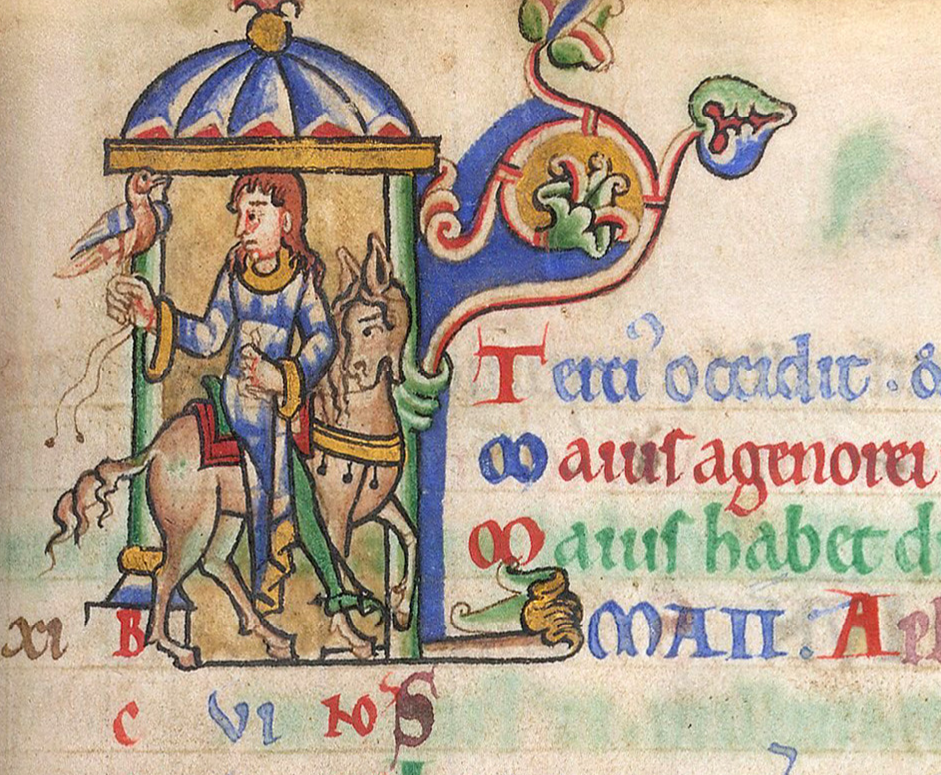 Terciꝰ occidit . &
Maius agenorei
Maius habet
xi B KL MAII . Ap
C VI NO S